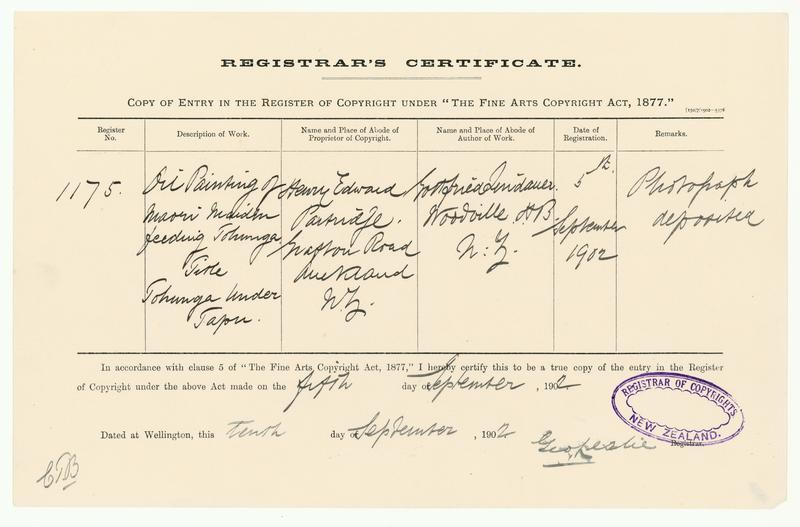 REGISTRAR'S CERTIFICATE.
COPY OF ENTRY IN THE REGISTER OF COPYRIGHT UNDER "THE FINE ARTS COPYRIGHT ACT, 1877."
Register No.
Description of Work.
Name and Place of Abode of Proprietor of Copyright.
Name and Place of Abode of Author of Work.
Date of Registration.
Remarks.
1175.
Oil Painting of
Maori Maiden
feeding Tohunga
Title
Tohunga Under
Tapu.
Henry Edward
Partridge.
Grafton Road
Auckland
N.Z.
Gottfried Lindauer.
Woodville H.B.
N.Z.
5th
September
1902
Photograph
deposited
In accordance with clause 5 of "The Fine Arts Copyright Act, 1877," I hereby certify this to be a true copy of the entry in the Register
of Copyright under the above Act made on the fifth day of September, 1902
Dated at Wellington, this tenth day of September, 1902
REGISTRAR OF COPYRIGHTS
NEW ZEALAND.
Registrar.